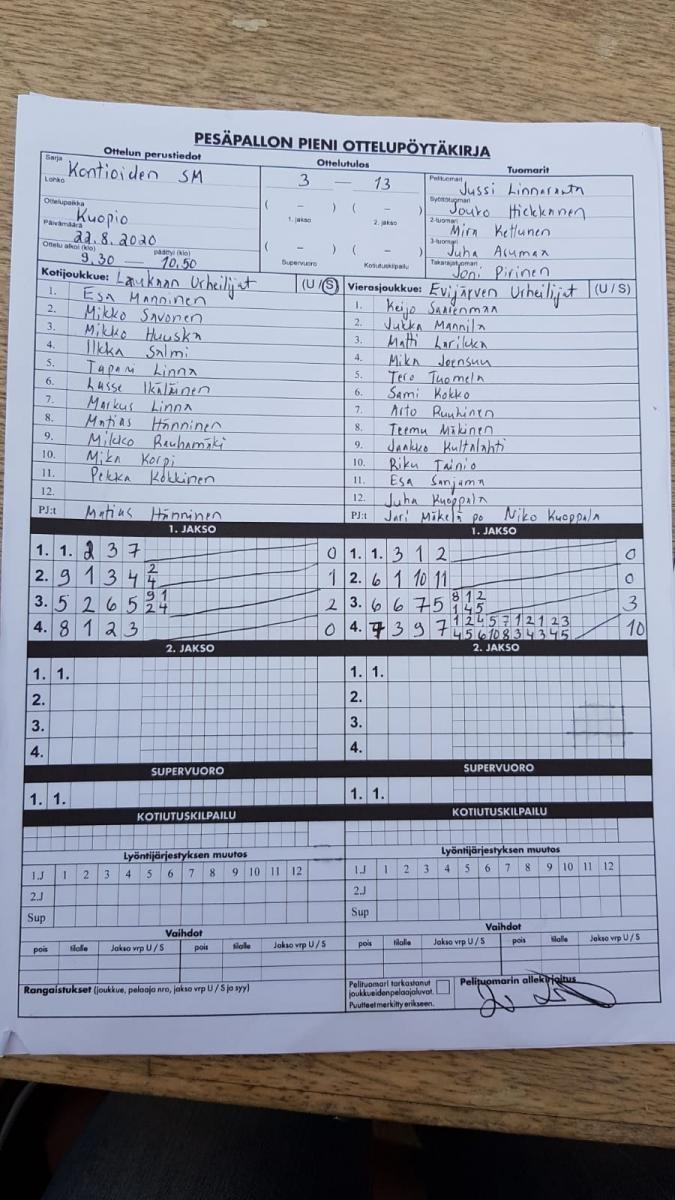 PESÄPALLON PIENI OTTELUPÖYTÄKIRJA
Ottelun perustiedot
Ottelutulos
Tuomarit
Sarja Kontioiden SM
Lohko
Ottelupaikka Kuopio
Päivämäärä 22.8.2020
Ottelu alkoi (klo) päättyi (klo)
9.30 — 10.50
3 — 13
( – ) ( – )
1. jakso 2. jakso
( – ) ( – )
Supervuoro Kotiutuskilpailu
Pelituomari Jussi Linnaranta
Syöttötuomari Jouko Hickkanen
2-tuomari Mira Kettunen
3-tuomari Juha Asuman
Takarajatuomari Joni Pirinen
Kotijoukkue: Laukaan Urheilijat (U / S)
1. Esa Manninen
2. Mikko Savonen
3. Mikko Huuska
4. Ilkka Salmi
5. Tapani Linna
6. Lasse Ikäläinen
7. Markus Linna
8. Matias Hänninen
9. Mikko Rauhamäki
10. Mika Korpi
11. Pekka Kokkinen
12.
PJ:t Matias Hänninen
Vierasjoukkue: Evijärven Urheilijat (U / S)
1. Keijo Saarenmaa
2. Jukka Mannila
3. Matti Larikka
4. Mika Joensuu
5. Tero Tuomela
6. Sami Kokko
7. Arto Ruuhinen
8. Teemu Mäkinen
9. Jaakko Kultalahti
10. Riku Tainio
11. Esa Sanjama
12. Juha Kuoppala
PJ:t Jari Mäkelä po Niko Kuoppala
1. JAKSO
1. 1. 2 3 7 0
2. 9 1 3 4 2 4 1
3. 5 2 6 5 9 1 2 4 2
4. 8 1 2 3 0
1. JAKSO
1. 1. 3 1 2 0
2. 6 1 10 11 0
3. 6 6 7 5 8 1 2 1 4 5 3
4. 7 3 9 7 1 2 4 5 7 1 2 1 2 3 4 5 6 10 8 3 4 3 4 5 10
2. JAKSO
1. 1.
2.
3.
4.
2. JAKSO
1. 1.
2.
3.
4.
SUPERVUORO
1. 1.
SUPERVUORO
1. 1.
KOTIUTUSKILPAILU
KOTIUTUSKILPAILU
Lyöntijärjestyksen muutos
1.J 1 2 3 4 5 6 7 8 9 10 11 12
2.J
Sup
Lyöntijärjestyksen muutos
1.J 1 2 3 4 5 6 7 8 9 10 11 12
2.J
Sup
Vaihdot
pois tilalle Jakso vrp U / S pois tilalle Jakso vrp U / S
Vaihdot
pois tilalle Jakso vrp U / S pois tilalle Jakso vrp U / S
Rangaistukset (joukkue, pelaaja nro, jakso vrp U / S ja syy)
Pelituomari tarkastanut
joukkueiden pelaajaluvat.
Puutteet merkitty erikseen.
Pelituomarin allekirjoitus